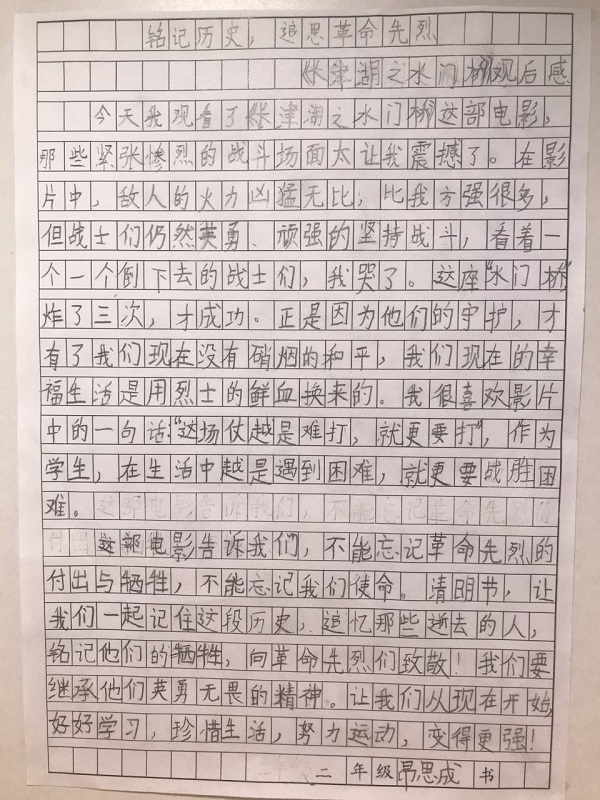 铭记历史，追思革命先烈
《长津湖之水门桥》观后感
今天我观看了《长津湖之水门桥》这部电影，
那些紧张惨烈的战斗场面太让我震撼了。在影
片中，敌人的火力凶猛无比，比我方强很多，
但战士们仍然英勇、顽强的坚持战斗，看着一
个一个倒下去的战士们，我哭了。这座“水门桥”
炸了三次，才成功。正是因为他们的守护，才
有了我们现在没有硝烟的和平，我们现在的幸
福生活是用烈士的鲜血换来的。我很喜欢影片
中的一句话“这场仗越是难打，就更要打”，作为
学生，在生活中越是遇到困难，就更要战胜困
难。
这部电影告诉我们，不能忘记革命先烈的
付出与牺牲，不能忘记我们使命。清明节，让
我们一起记住这段历史，追忆那些逝去的人，
铭记他们的牺牲，向革命先烈们致敬！我们要
继承他们英勇无畏的精神。让我们从现在开始，
好好学习，珍惜生活，努力运动，变得更强！
二年级昂思成 书